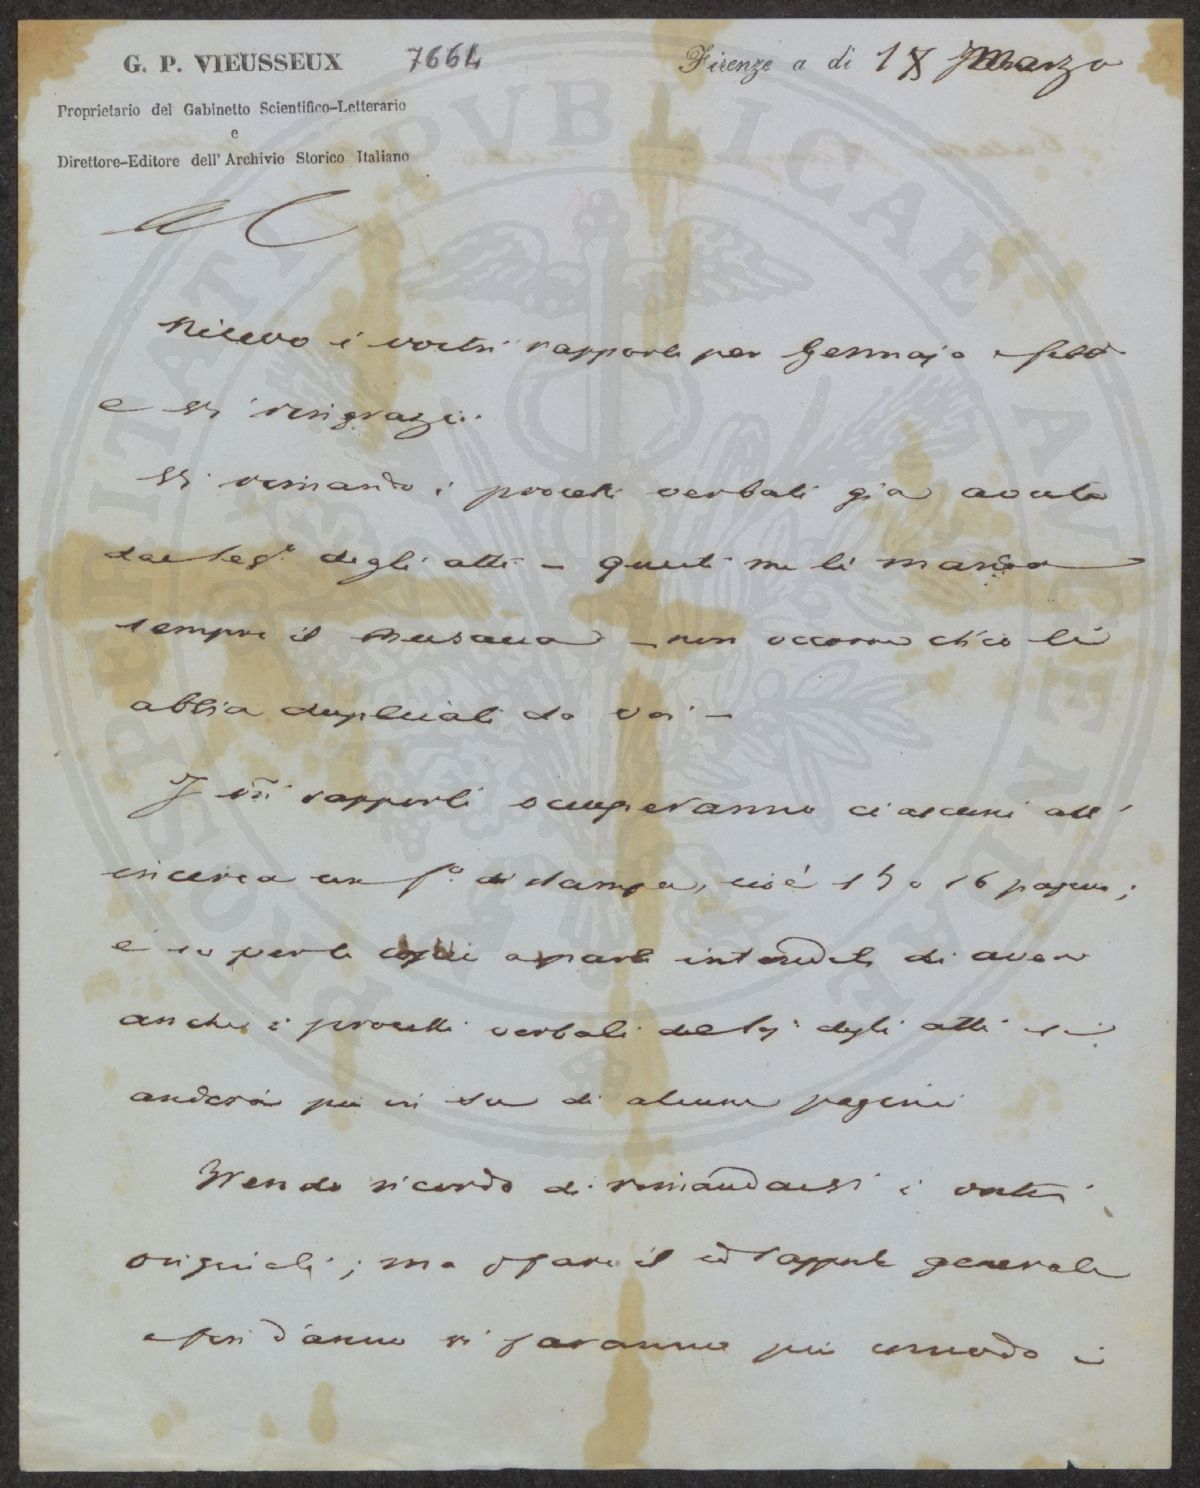 G. P. VIEUSSEUX 7664 Firenze a di 18 Marzo
Proprietario del Gabinetto Scientifico-Letterario
e
Direttore-Editore dell' Archivio Storico Italiano
Ricevo i vostri rapporti per Gennajo e febbº
e vi ringrazio.
Vi rimando i processi verbali già avuti
dal Segº degli atti – questi me li manda
sempre il – non occorre ch'io li
abbia duplicati da voi –
I vri rapporti occuperanno ciascuni all'
incirca un fº di stampa, cioè 15 o 16 pagine;
e se per le copie a parte intendete di avere
anche i processi verbali del Sº degli atti si
anderà più in su di alcune pagine
Prendo ricordo di rimandarvi i vostri
originali; ma per fare il rapporto generale
a fin d'anno vi saranno più comodo i
PROSPERITATI PUBLICAE AVGENDAE